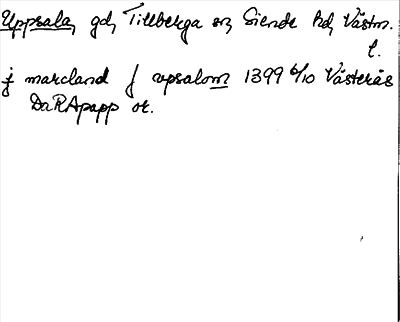 Uppsala, gd, Tillberga sn, Siende hd, Västm.
l.
j marcland j upsalom 1399 6/10 Västerås
DaRApapp or.